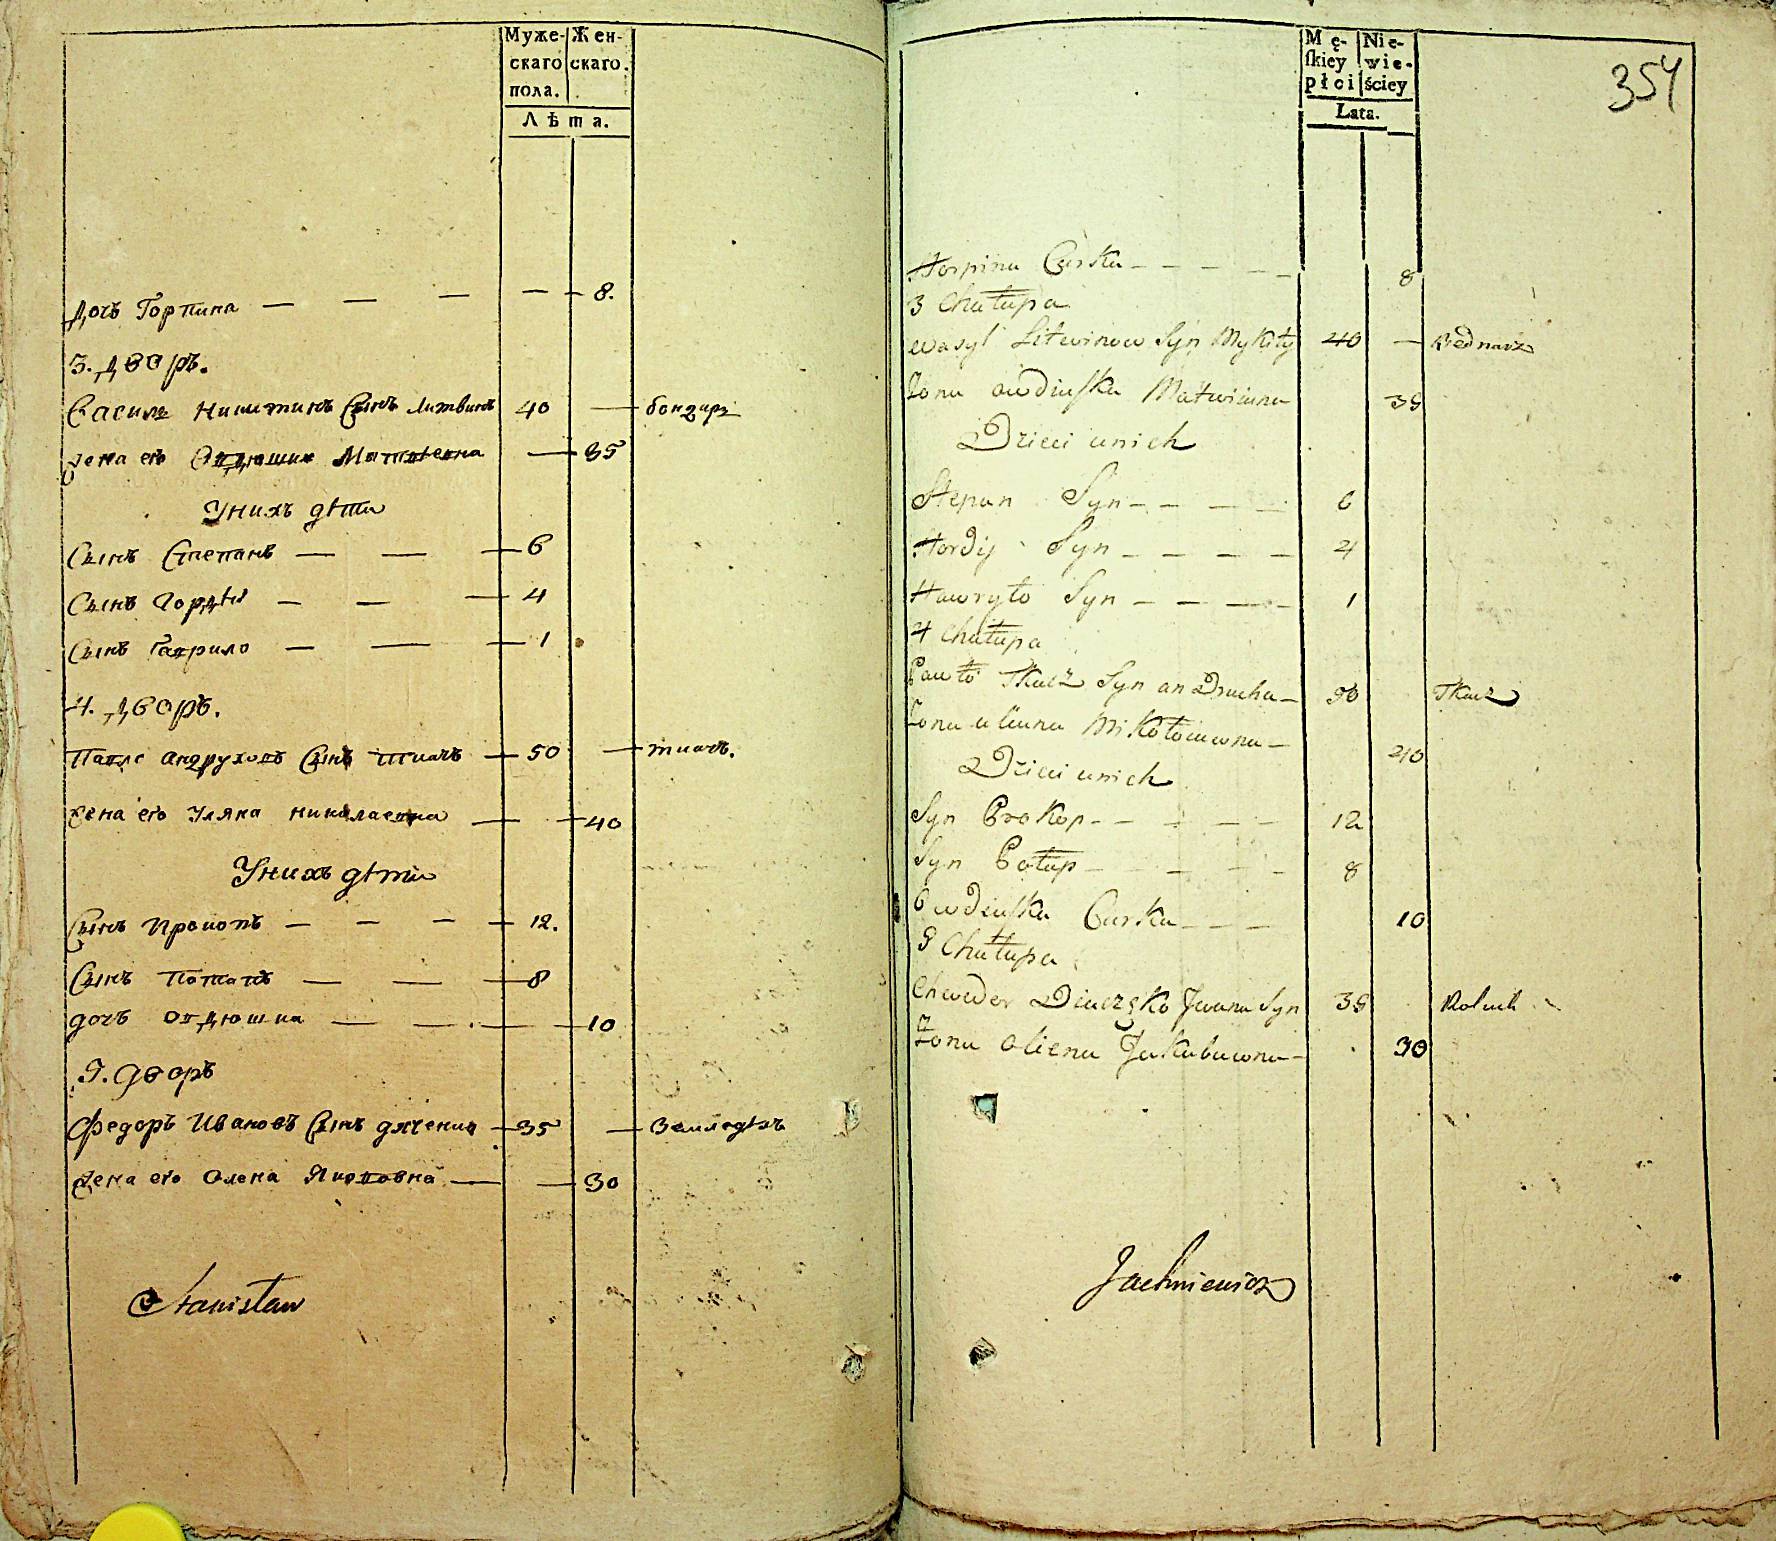 Муже- Жен-
скаго скаго.
пола.
Лѣта.
Дочь Горпина — — — — 8.
3. дворъ.
Василь Никитинъ Сынъ Литвинъ 40 — бондарь
Жена его Овдюшка Матвѣевна — 35
У нихъ дѣти
Сынъ Степанъ — — — 6
Сынъ Гордѣй — — — 4
Сынъ Гаврило — — — 1
4. дворъ.
Павло Андруховъ Сынъ Ткачъ — 50 — ткачъ.
Жена его Уляна Николаевна — 40
У нихъ дѣти
Сынъ Прокопъ — — — — 12.
Сынъ Потапъ — — — 8
дочь Овдюшка — — — — 10
5. дворъ
Федоръ Ивановъ Сынъ дяченко — 35 — Земледѣлъ
Жена его Олена Якововна — — 30
Stanisław
Mę- Nie-
ſkiey wie-
płci ściey
Lata.
354
Horpina Curka — — — — 8
3 Chałupa
Wasyl Litwinow Syn Mykity 40 — Bednarz
Żona Owdiuſka Matwiiwna 35
Dzieci u nich
Stepan Syn — — — — 6
Hordij Syn — — — — 4
Hawryło Syn — — — — 1
4 Chałupa
Pawło Tkacz Syn andrucha — 50 Tkacz
Żona uliana Mikołaiowna — 40
Dzieci u nich
Syn Prokop — — — — — 12
Syn Potap — — — — — 8
Owdiuſka Curka — — — 10
5 Chałupa
Chwedor Diaczęko Jwana Syn 35 Rolnik
Żona Oliena Jakubowna — 30
Jachniewicz